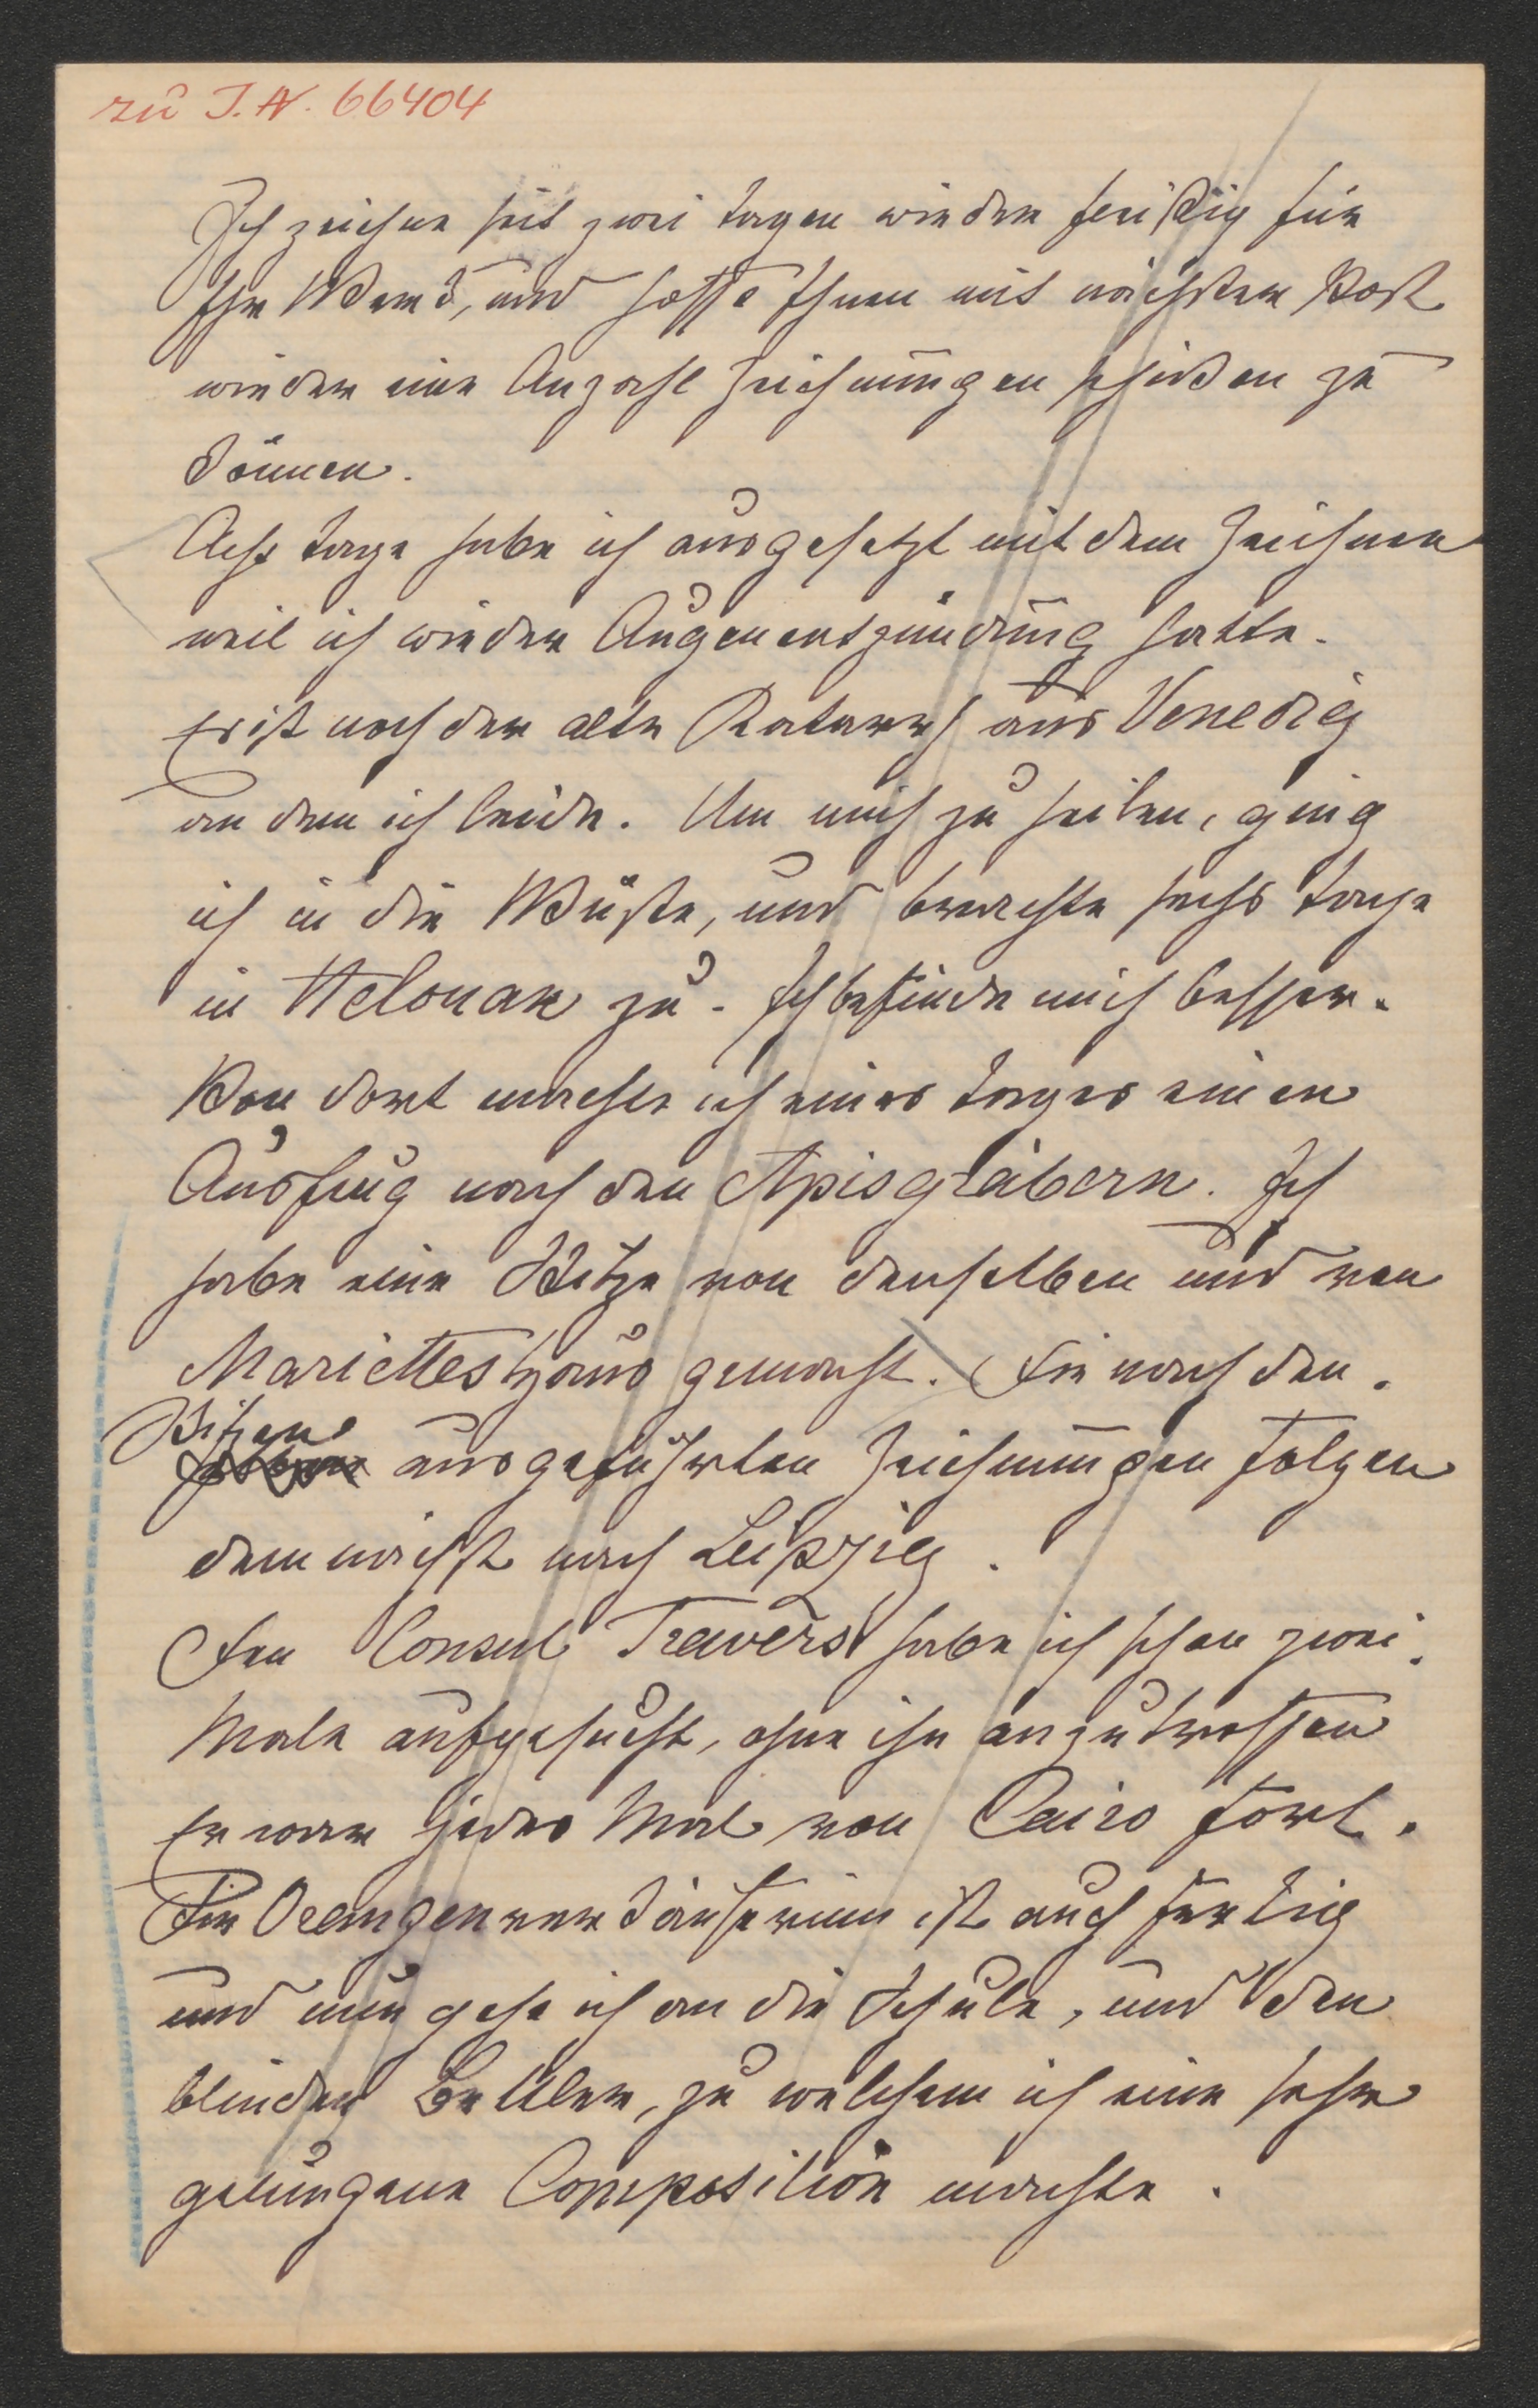 zu I. N. 66404
Ich zeichne seit zwei Tagen wieder fleißig für
Ihr Werk, und hoffe Ihnen mit nächster Post
wieder eine Anzahl Zeichnungen schicken zu
können.
Acht Tage habe ich ausgesetzt mit dem Zeichnen
weil ich wieder Augenentzündung hatte.
Es ist noch der alte Katarrh aus Venedig
an dem ich leide. Um mich zu heilen, ging
ich in die Wüste, und brachte sechs Tage
in Helouan zu. Ich befinde mich besser.
Von dort machte ich eines Tages einen
Ausflug nach den Apisgräbern. Ich
habe eine Skitze von denselben und von
Mariettes Haus gemacht. Die nach den
Skitzen
ausgeführten Zeichnungen folgen
demnächst nach Leipzig.
Den Consul Travers habe ich schon zwei
Male aufgesucht, ohne ihn anzutreffen
Er war jedes Mal von Cairo fort.
Die Orangenverkäuferinn ist auch fertig
und nun gehe ich an die Schule, und den
blinden Bettler, zu welchem ich eine sehr
gelungene Composition machte.